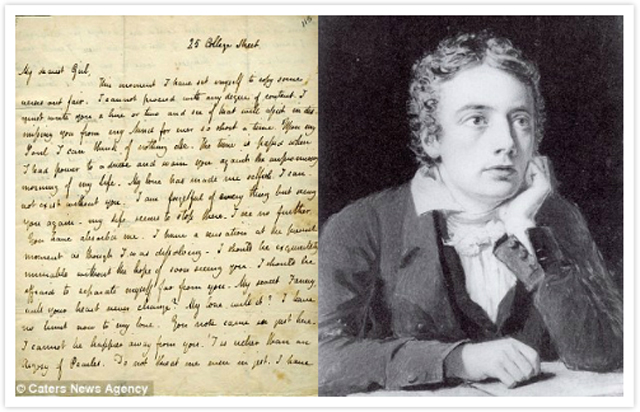 25 College Street
My dearest Girl,
This moment I have set myself to copy some
verses out fair. I cannot proceed with any degree of content. I
must write you a line or two and see if that will assist in dis-
missing you from my Mind for ever so short a time. Upon my
Soul I can think of nothing else. The time is passed when
I had power to advise and warn you against the unpromising
morning of my Life. My love has made me selfish. I can-
not exist without you. I am forgetful of every thing but seeing
you again - my Life seems to stop there. I see no further.
You have absorb'd me. I have a sensation at the present
moment as though I was dissolving - I should be exquisitely
miserable without the hope of soon seeing you. I should be
afraid to separate myself far from you. My sweet Fanny,
will your heart never change? My love, will it? I have
no limit now to my love. You note came in just here.
I cannot be happier away from you. 'T is richer than an
Argosy of Pearles. Do not threat me even in jest. I have
© Caters News Agency